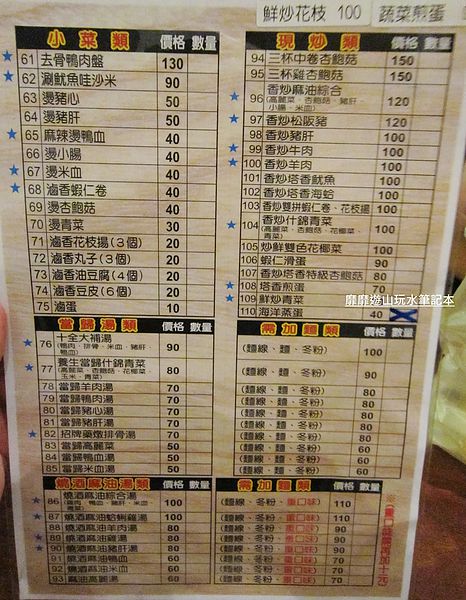 鮮炒花枝 100
蔬菜煎蛋
小菜類 價格 數量
61 去骨鴨肉盤 130
62 涮魷魚哇沙米 90
63 燙豬心 50
64 燙豬肝 50
65 麻辣燙鴨血 40
66 燙小腸 40
67 燙米血 40
68 滷香蝦仁卷 40
69 燙杏鮑菇 40
70 燙青菜 30
71 滷香花枝揚(3個) 20
72 滷香丸子(3個) 20
73 滷香油豆腐(4個) 20
74 滷香豆皮(6個) 20
75 滷蛋 10
當歸湯類 價格 數量
76 十全大補湯 90
(鴨肉、排骨、米血、豬肝、鴨血)
77 養生當歸什錦青菜 80
(高麗菜、杏鮑菇、花椰菜、玉米、青菜)
78 當歸羊肉湯 70
79 當歸鴨肉湯 70
80 當歸豬心湯 70
81 當歸豬肝湯 70
82 招牌藥燉排骨湯 70
83 當歸高麗菜 50
84 當歸鴨血湯 50
85 當歸米血湯 50
燒酒麻油湯類 價格 數量
86 燒酒麻油綜合湯 100
87 燒酒麻油蛤蜊雞湯 100
88 燒酒麻油羊肉湯 80
89 燒酒麻油雞湯 80
90 燒酒麻油豬肝湯 80
91 燒酒麻油鴨血 60
92 燒酒麻油米血 60
93 麻油高麗湯 60
現炒類 價格 數量
94 三杯中卷杏鮑菇 150
95 三杯雞杏鮑菇 150
96 香炒麻油綜合 120
(高麗菜、杏鮑菇、豬肝、小腸、米血)
97 香炒松阪豬 120
98 香炒豬肝 100
99 香炒牛肉 100
100 香炒羊肉 100
101 香炒塔香魷魚 100
102 香炒塔香海蛤 100
103 香炒雙拼蝦仁卷、花枝揚 100
104 香炒什錦青菜 100
(高麗菜、杏鮑菇、花椰菜、青菜)
105 炒鮮雙色花椰菜 100
106 蝦仁滑蛋 90
107 香炒塔香特級杏鮑菇 80
108 塔香煎蛋 70
109 鮮炒青菜 70
110 海洋蒸蛋 40
靡靡遊山玩水筆記本
需加麵類 價格 數量
(麵線、麵、冬粉) 100
(麵線、麵、冬粉) 90
(麵線、麵、冬粉) 80
(麵線、麵、冬粉) 80
(麵線、麵、冬粉) 80
(麵線、麵、冬粉) 80
(麵線、麵、冬粉) 80
(麵線、麵、冬粉) 60
(麵線、麵、冬粉) 60
(麵線、麵、冬粉) 60
需加麵類 價格 數量
(麵線、冬粉、重口味) 110
(麵線、冬粉、重口味) 110
(麵線、冬粉、重口味) 90
(麵線、冬粉、重口味) 90
(麵線、冬粉、重口味) 90
(麵線、冬粉、重口味) 70
(麵線、冬粉、重口味) 70
(麵線、冬粉、重口味) 70
※重口味需再加十元